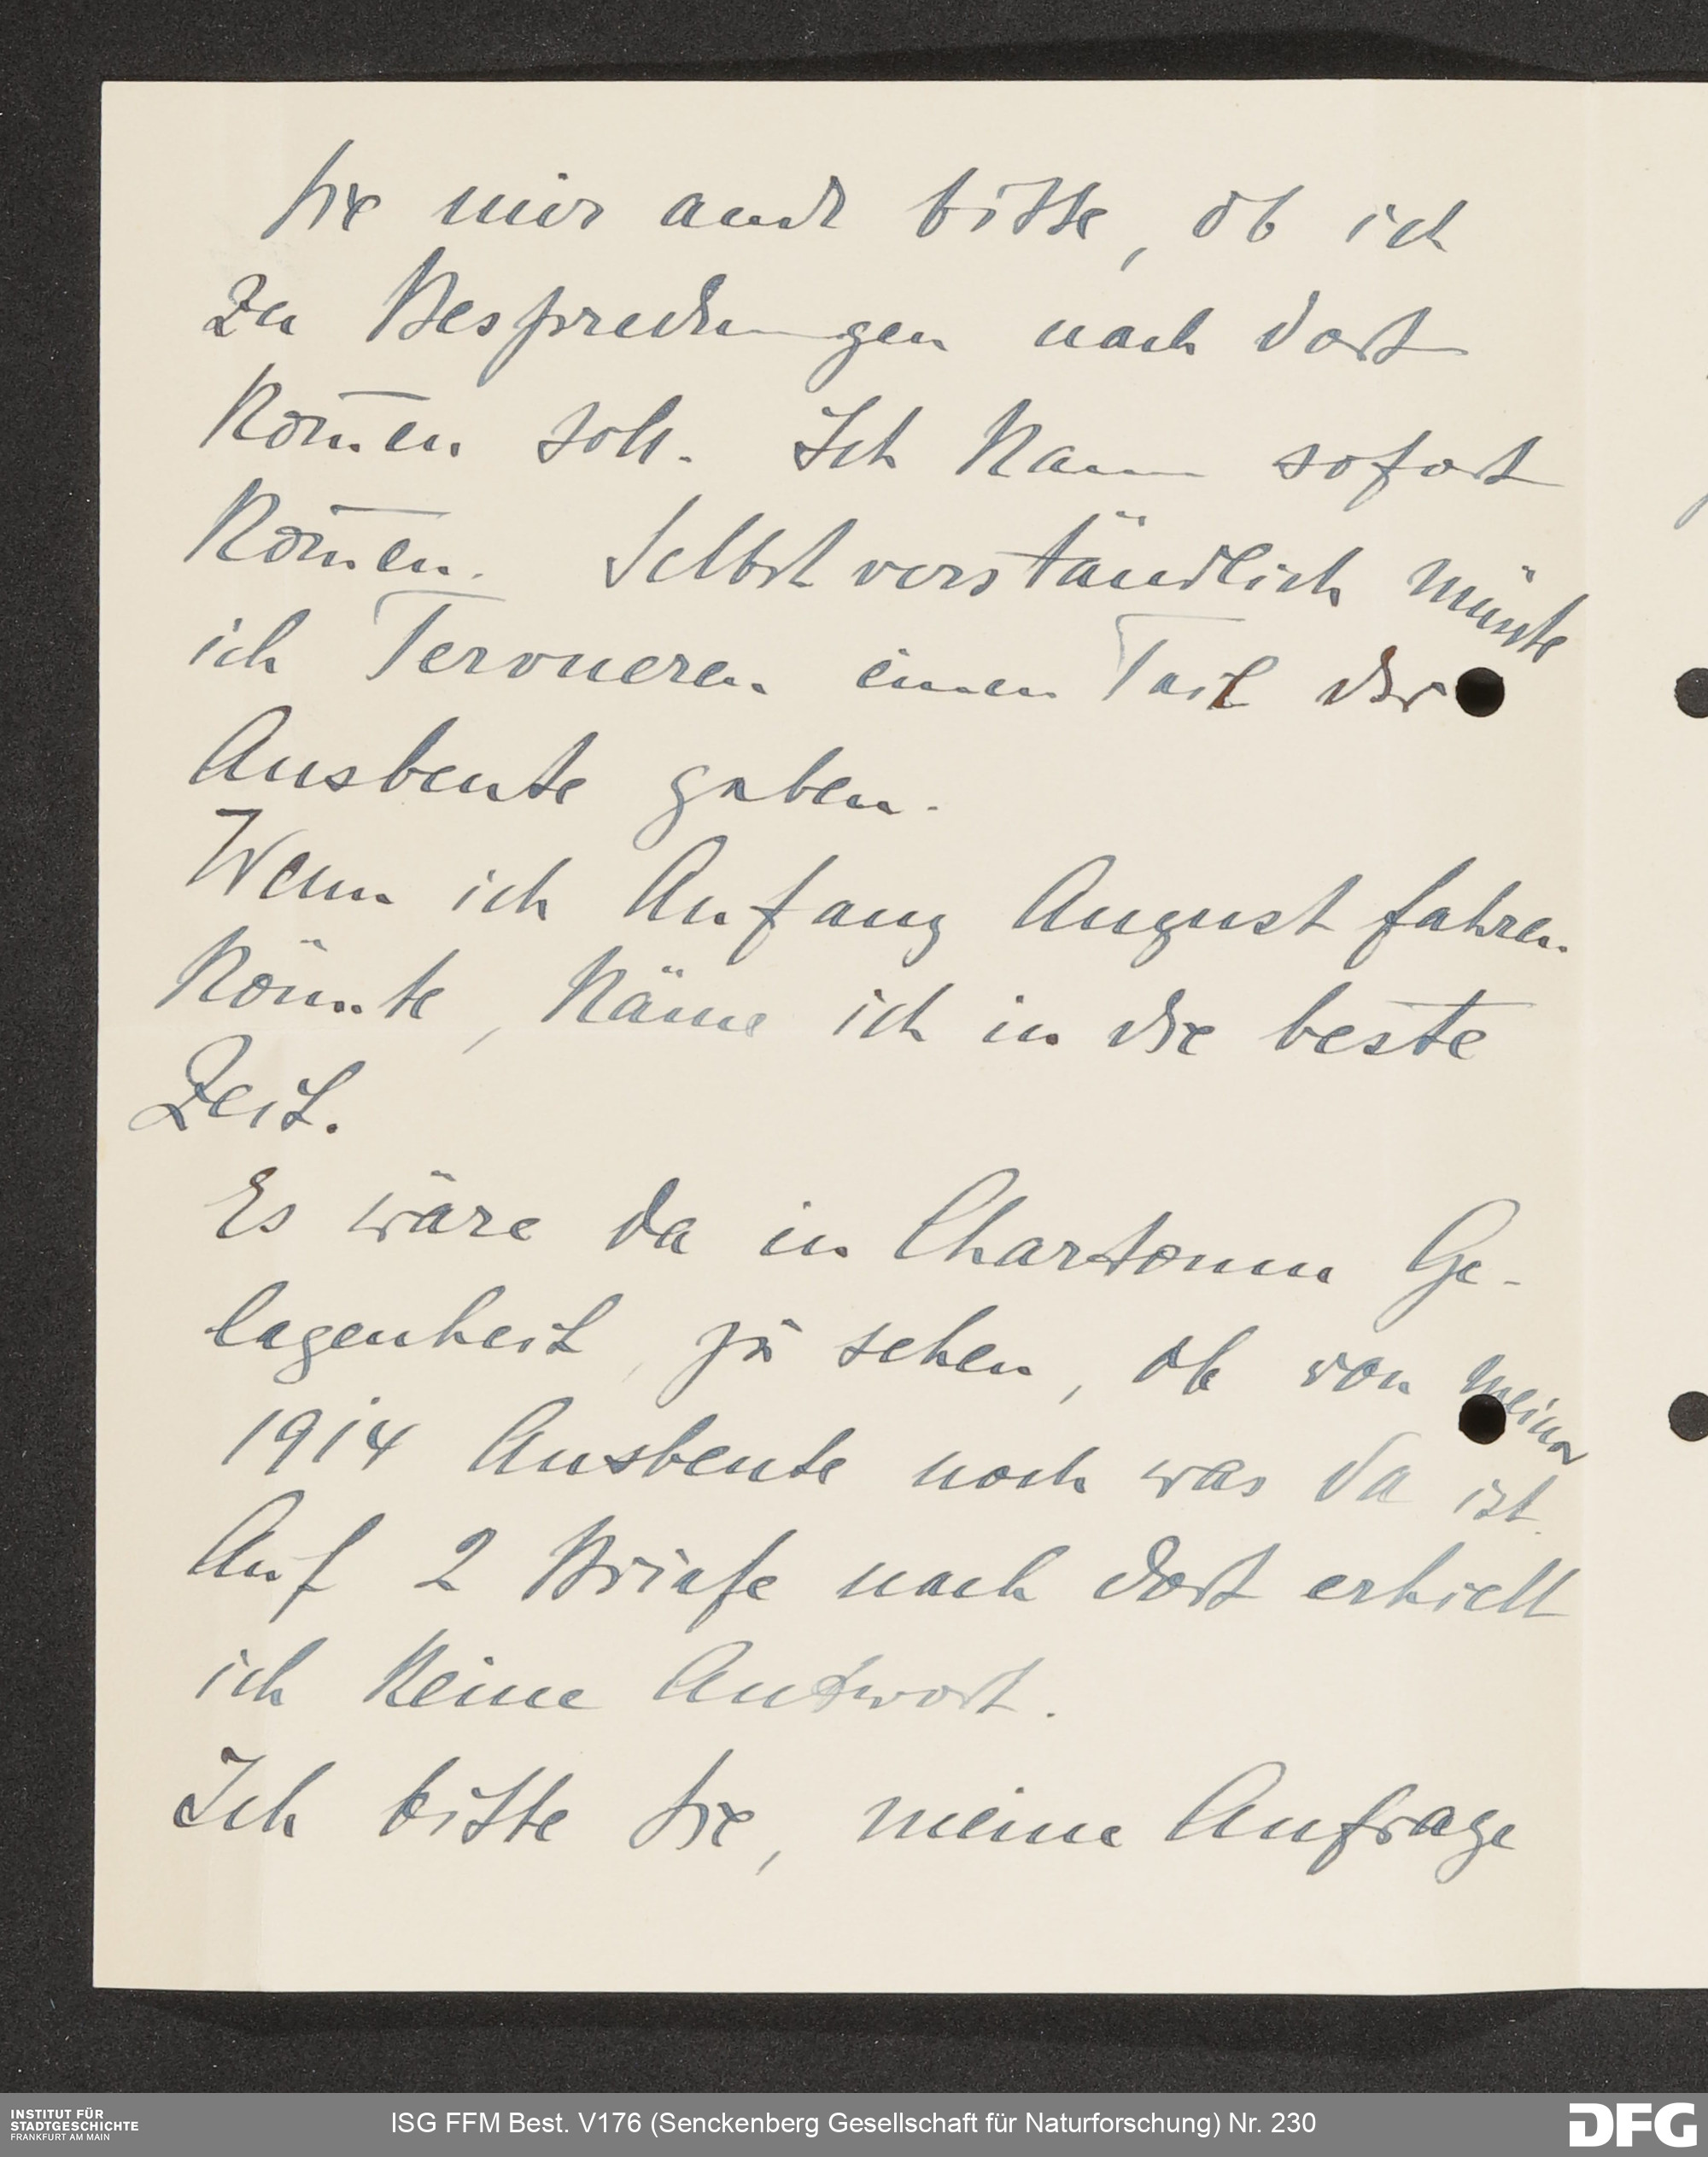 Sie mir auch bitte, ob ich
zu Besprechungen nach dort
kom̄en soll. Ich kann sofort
kom̄en. Selbstverständlich müsste
ich Tervueren einen Teil der
Ausbeute geben.
Wenn ich Anfang August fahren
könnte, käme ich in die beste
Zeit.
Es wäre da in Chartoum Ge-
legenheit, zu sehen, ob von meiner
1914 Ausbeute noch was da ist.
Auf 2 Briefe nach dort erhielt
ich keine Antwort.
Ich bitte Sie, meine Anfrage
INSTITUT FÜR
STADTGESCHICHTE
FRANKFURT AM MAIN
ISG FFM Best. V176 (Senckenberg Gesellschaft für Naturforschung) Nr. 230
DFG